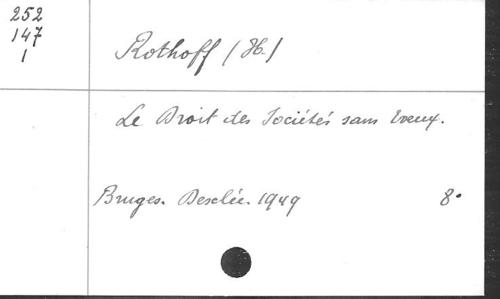 252
147
1
Rothoff (H.)
Le Droit des Sociétés sans Voeux.
Bruges. Desclée. 1949 8°